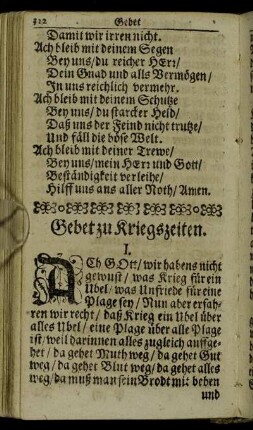 312 Gebet
Damit wir irren nicht.
Ach bleib mit deinem Segen
Bey uns/ du reicher HErr/
Dein Gnad und alls Vermögen/
In uns reichlich vermehr.
Ach bleib mit deinem Schutze
Bey uns/ du starcker Held/
Daß uns der Feind nicht trutze/
Und fäll die böse Welt.
Ach bleib mit deiner Trewe/
Bey uns/ mein HErr und Gott/
Beständigkeit verleihe/
Hilff uns aus aller Noth/ Amen.
Gebet zu Kriegszeiten.
I.
ACh GOtt/ wir habens nicht
gewust/ was Krieg für ein
Ubel/ was Unfriede für eine
Plage sey/ Nun aber erfah-
ren wir recht/ daß Krieg ein Ubel über
alles Ubel/ eine Plage über alle Plage
ist/ weil darinnen alles zugleich auffge-
het/ da gehet Muth weg/ da gehet Gut
weg/ da gehet Blut weg/ da gehet alles
weg/ da muß man sein Brodt mit beben
und